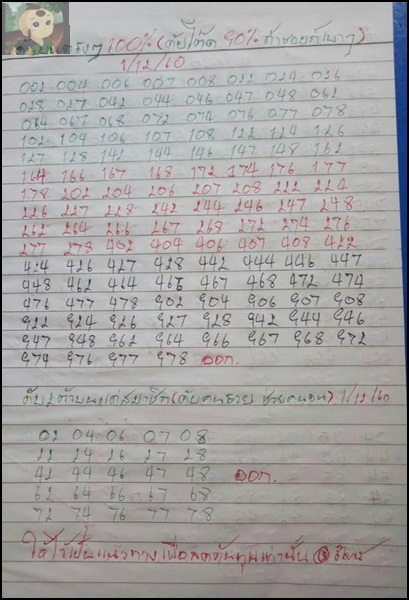 100% (ดับโต๊ด 90%
1/12/60
002 004 006 007 008 022 024 026
028 027 042 044 046 047 048 062
064 067 068 072 074 076 077 078
102 104 106 107 108 122 124 126
127 128 142 144 146 147 148 162
164 166 167 168 172 174 176 177
178 202 204 206 207 208 222 224
226 227 228 242 244 246 247 248
262 264 266 267 268 272 274 276
277 278 402 404 406 407 408 422
424 426 427 428 442 444 446 447
448 462 464 466 467 468 472 474
476 477 478 902 904 906 907 908
922 924 926 927 928 942 944 946
947 948 962 964 966 967 968 972
974 976 977 978 ออก.
1/12/60
02 04 06 07 08
22 24 26 27 28
42 44 46 47 48 ออก.
62 64 66 67 68
72 74 76 77 78
ใช้เป็นแนวทางเพื่อลดต้นทุนเท่านั้น